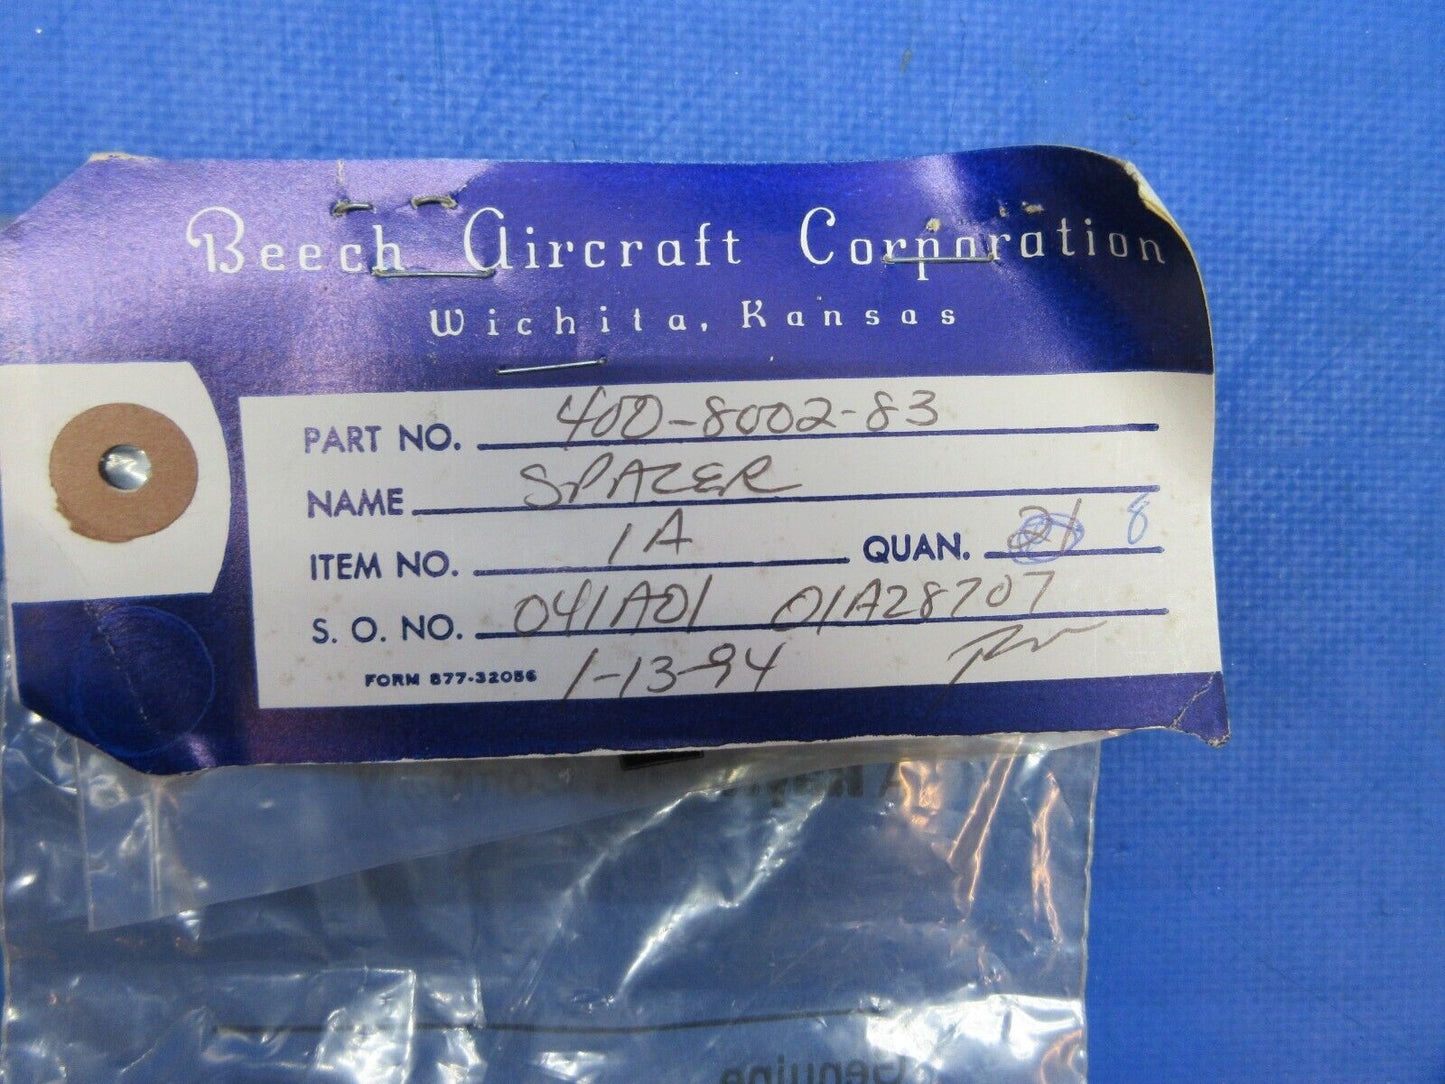 Beech Aircraft Corporation
Wichita, Kansas
PART NO. 400-8002-83
NAME SPACER
ITEM NO. 1A QUAN. 21 8
S. O. NO. 041A01 01A28707
FORM 877-32056 1-13-94
Genuine